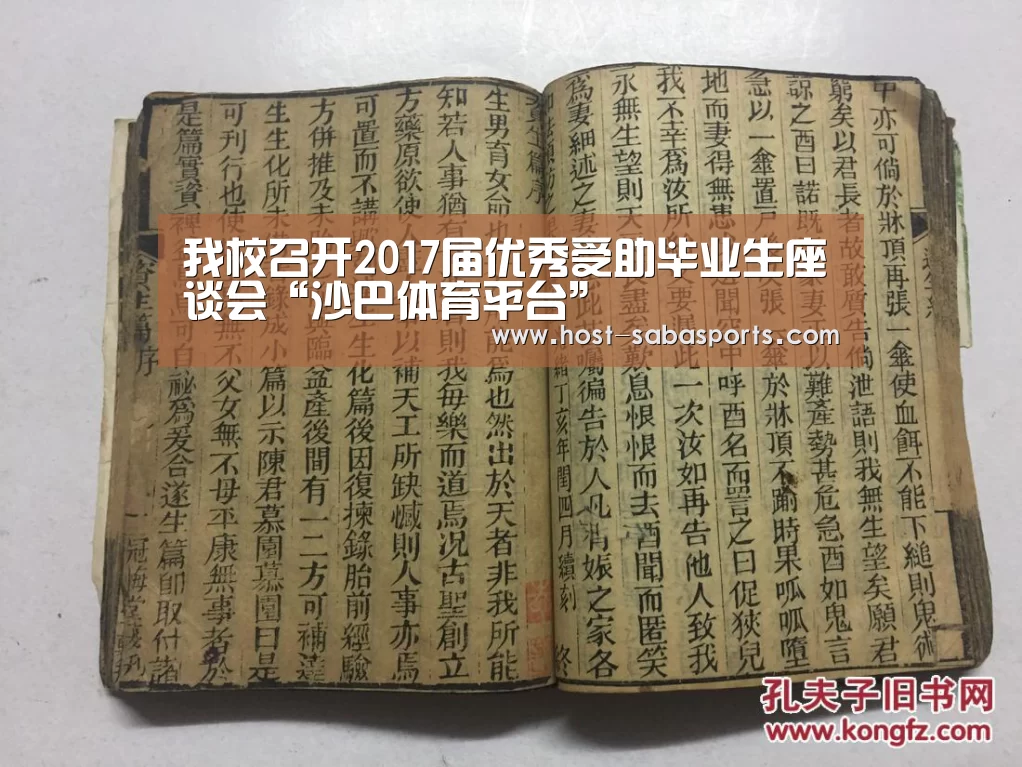 我校召开2017届优秀受助毕业生座
谈会“沙巴体育平台”
www.host-sabasports.com
中亦可倘於牀頂再張一傘使血餌不能下縋則鬼術
窮矣以君長者故敢質告倘泄語則我無生望矣願君
諒之酉曰諾既 妻以難產勢甚危急酉如鬼言
急以一傘置戸 張一傘於牀頂不踰時果呱呱墮
地而妻得無患 聞空中呼酉名而詈之曰促狹兒
我不幸爲汝所 此一次汝如再告他人致我
永無生望則天 長盡矣歎息恨恨而去酉聞而匿笑
爲妻細述之妻 此囑徧告於人凡有娠之家各
如法預防之 緒丁亥年閏四月續刻 終
資生篇序
生男育女命也 能爲也然出於天者非我所能
知若人事猶有 則我毋樂而道焉况古聖創立
方藥原欲使人 以補天工所缺憾則人事亦焉
可置而不講 生化篇後因復揀錄胎前經驗
方併推及未 臨盆產後間有一二方可補達
生生化所未 錄成小篇以示陳君慕園慕園曰是
可刊行也使 無不父女無不母平康無事者於
是篇實資 可自祕爲爰合遂生篇即取什諸
資生篇序 一 冠海堂
孔夫子旧书网
www.kongfz.com